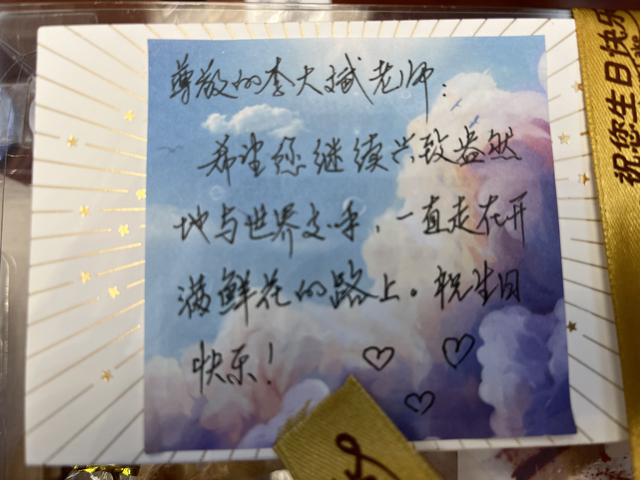 尊敬的李大斌老师：
希望您继续兴致盎然
地与世界交手，一直走在开
满鲜花的路上。祝生日
快乐！
祝您生日快乐